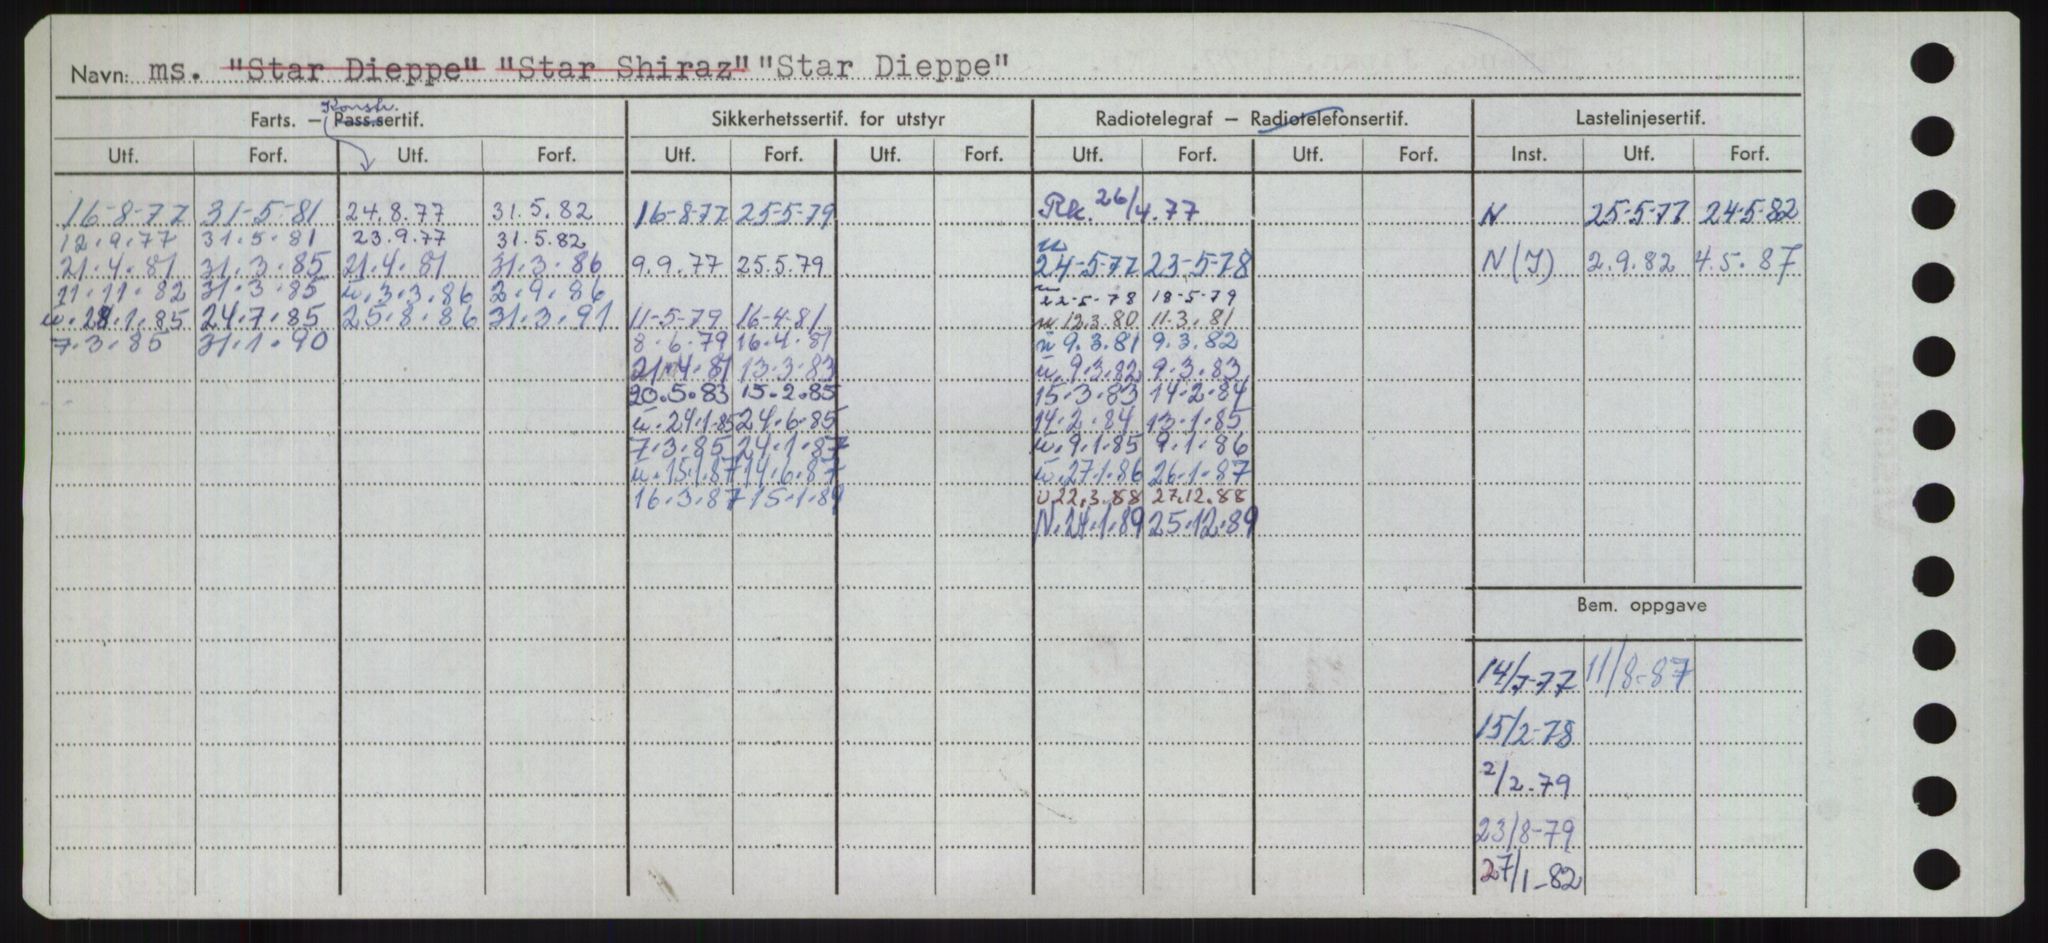 Navn: ms. "Star Dieppe" "Star Shiraz" "Star Dieppe"
Konstr.
Farts. — Pass.sertif. Sikkerhetssertif. for utstyr Radiotelegraf — Radiotelefonsertif. Lastelinjesertif.
Utf. Forf. Utf. Forf. Utf. Forf. Utf. Forf. Utf. Forf. Utf. Forf. Inst. Utf. Forf.
16-8-77 31-5-81 24.8.77 31.5.82 16-8-77 25-5-79 Rk. 26/4.77 N 25-5-77 24-5-82
12.9.77 31.5.81 23.9.77 31.5.82
21.4.81 31.3.85 21.4.81 31.3.86 9.9.77 25.5.79 u 24-5-77 23-5-78 N(I) 2.9.82 4.5.87
11.11.82 31.3.85 u.3.3.86 2.9.86 u 22-5-78 18-5-79
u.28.1.85 24.7.85 25.8.86 31.3.91 11-5-79 16-4-81 u 12.3.80 11.3.81
7.3.85 31.1.90 8.6.79 16.4.81 u 9.3.81 9.3.82
21.4.81 13.3.83 u.9.3.82 9.3.83
20.5.83 15.2.85 15.3.83 14.2.84
u.24.1.85 24.6.85 14.2.84 13.1.85
7.3.85 24.1.87 u.9.1.85 9.1.86
u.15.1.87 14.6.87 u.27.1.86 26.1.87
16.3.87 15.1.89 u 22.3.88 27.12.88
N.24.1.89 25.12.89
Bem. oppgave
14/7-77 11/8-87
15/2-78
2/2.79
23/8-79
27/1-82